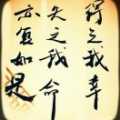 得之我幸
失之我命
亦复如是